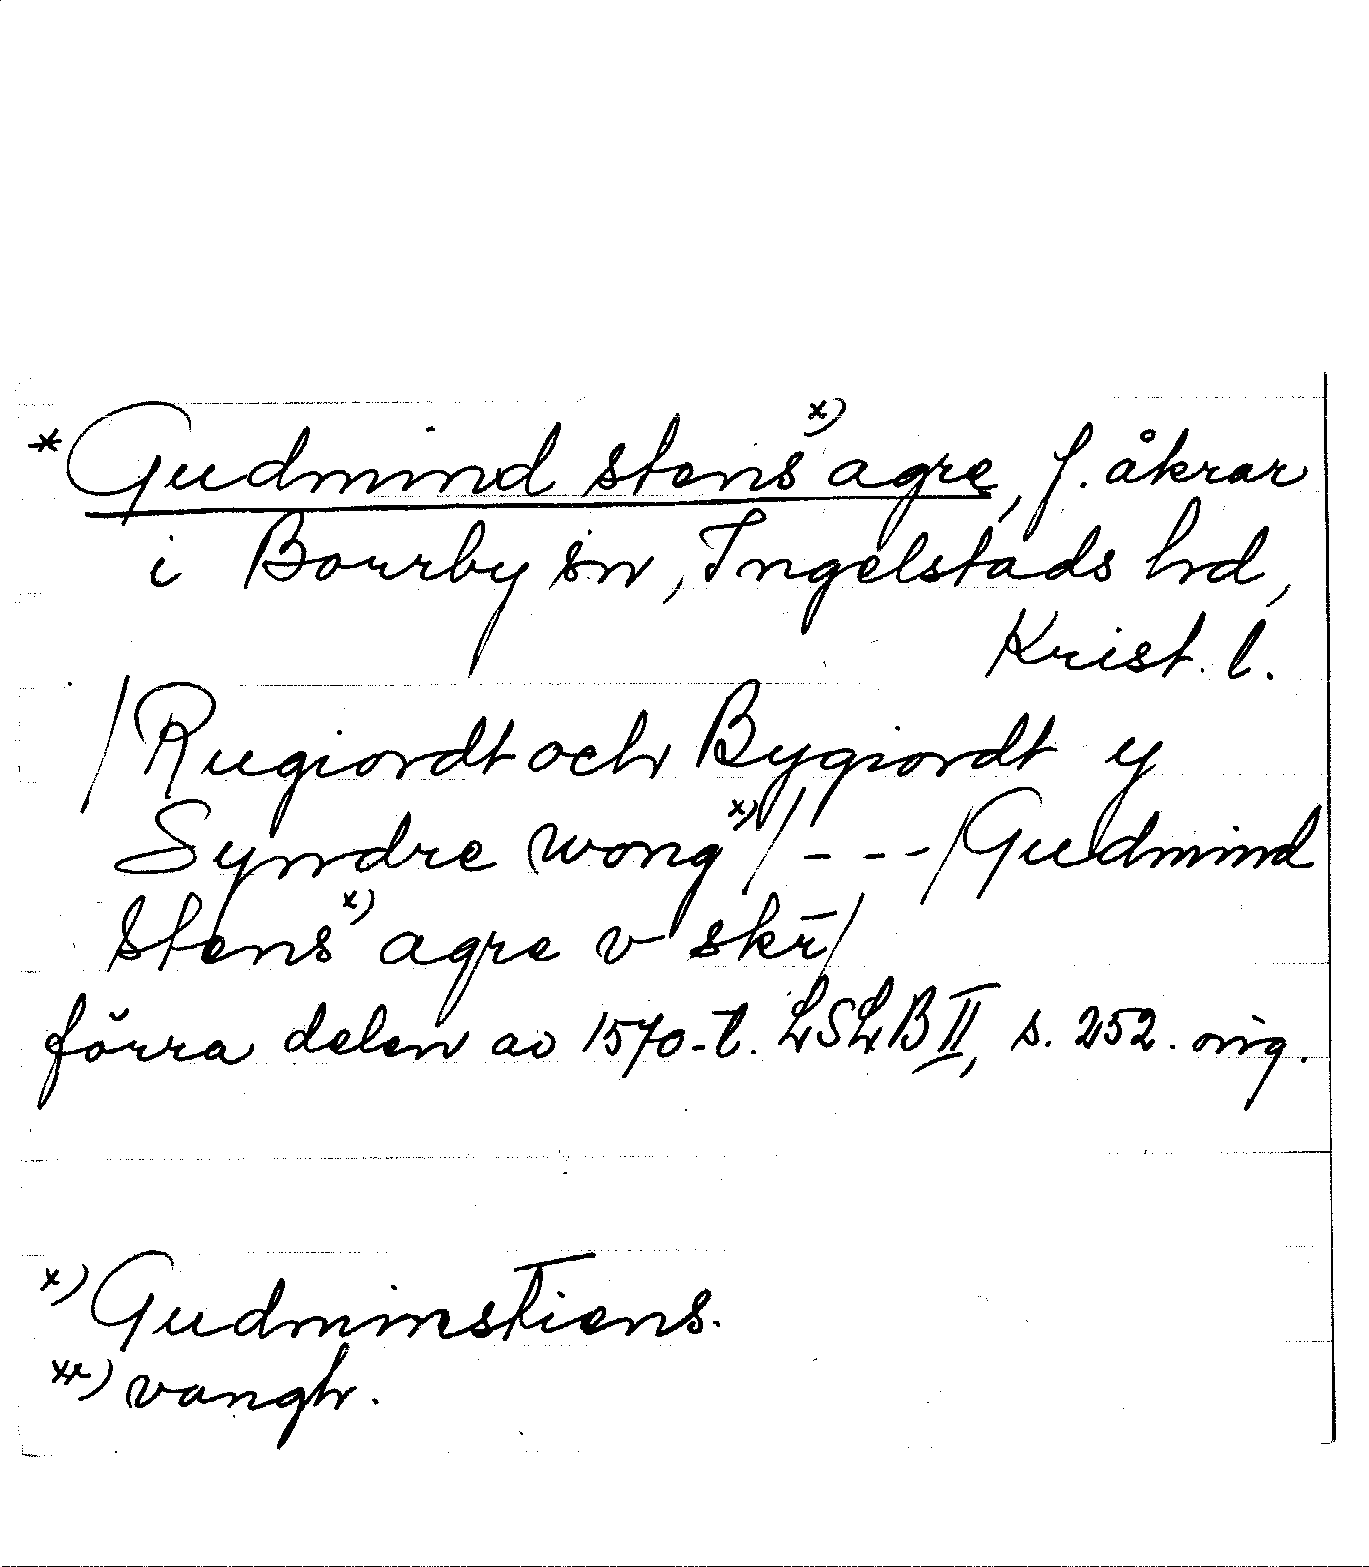 * Gudmind stens x) agre, f. åkrar
i Borrby sn, Ingelstads hd,
Krist. l.
/Rugiordt och Bygiordt y
Syndre wong x)/ - - - /Gudmind
stens x) agre v skr̄/
förra delen av 1570-t. LSLB II, s. 252. orig.
x) Gudminstiens.
xx) vangh.